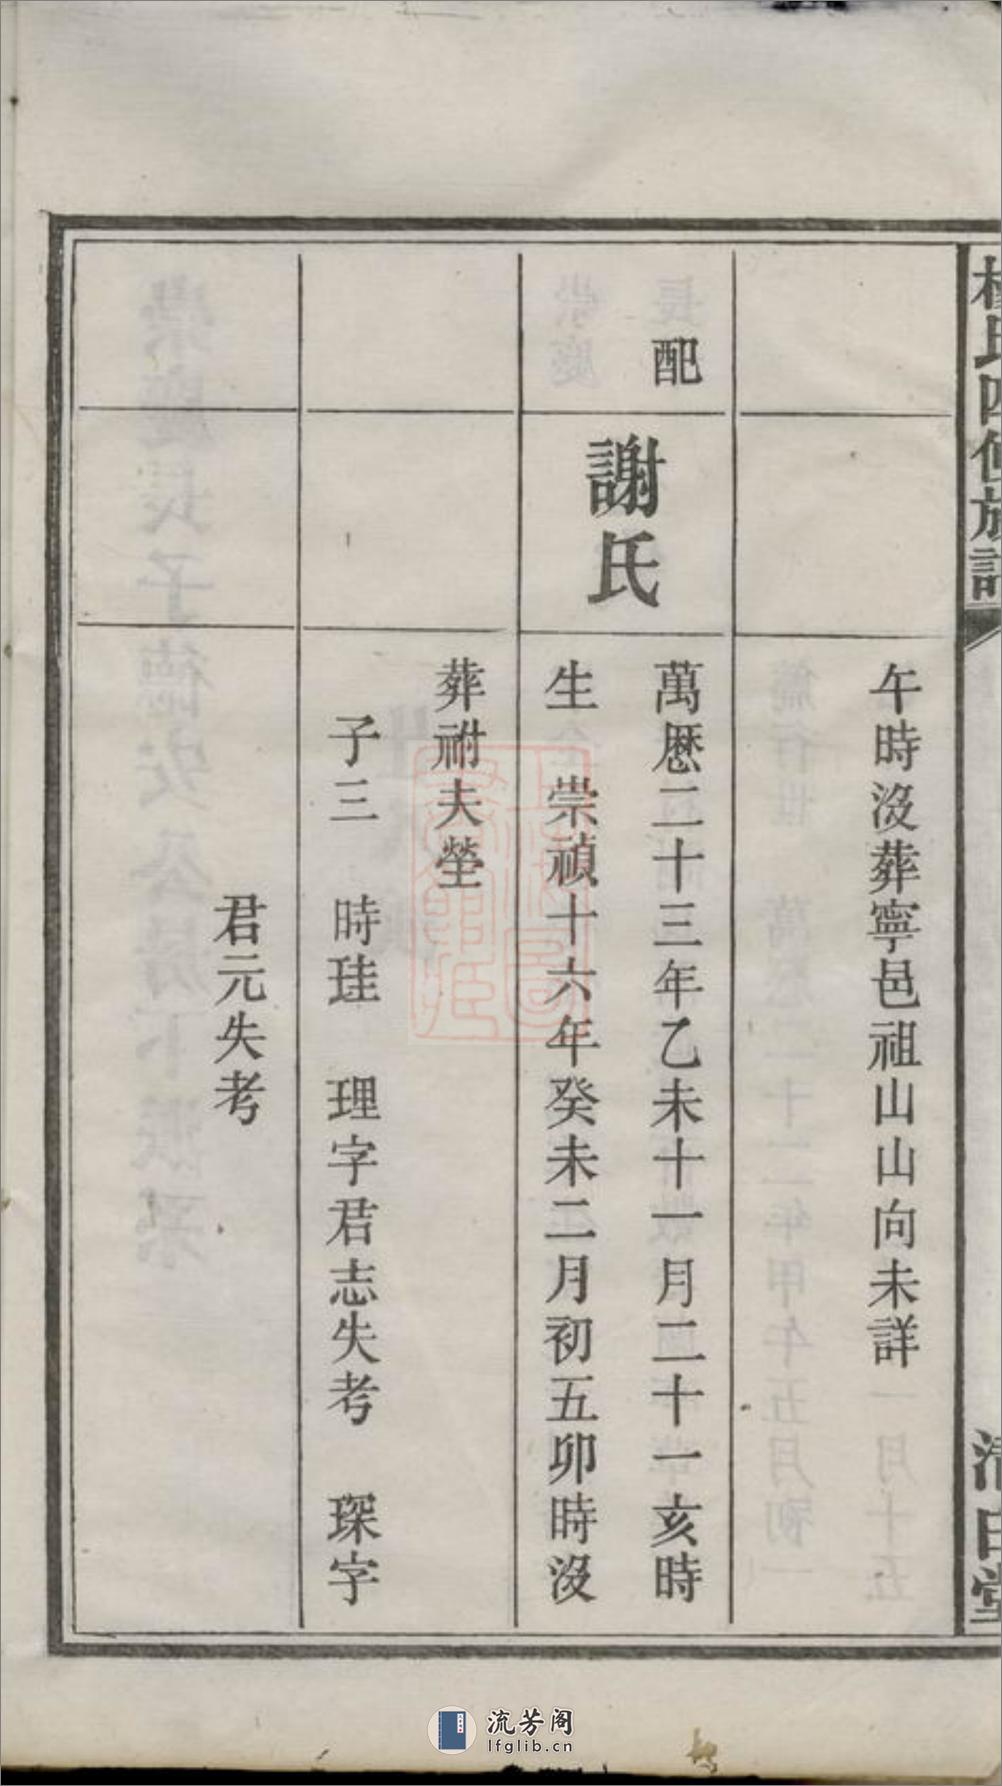 氏四修族譜
清白堂
午時沒葬寧邑祖山山向未詳
配
謝氏
萬厯二十三年乙未十一月二十一亥時
生　崇禎十六年癸未二月初五卯時沒
葬祔夫塋
子三　時珪　理字君志失考　琛字
君元失考
流芳阁
lfglib.cn